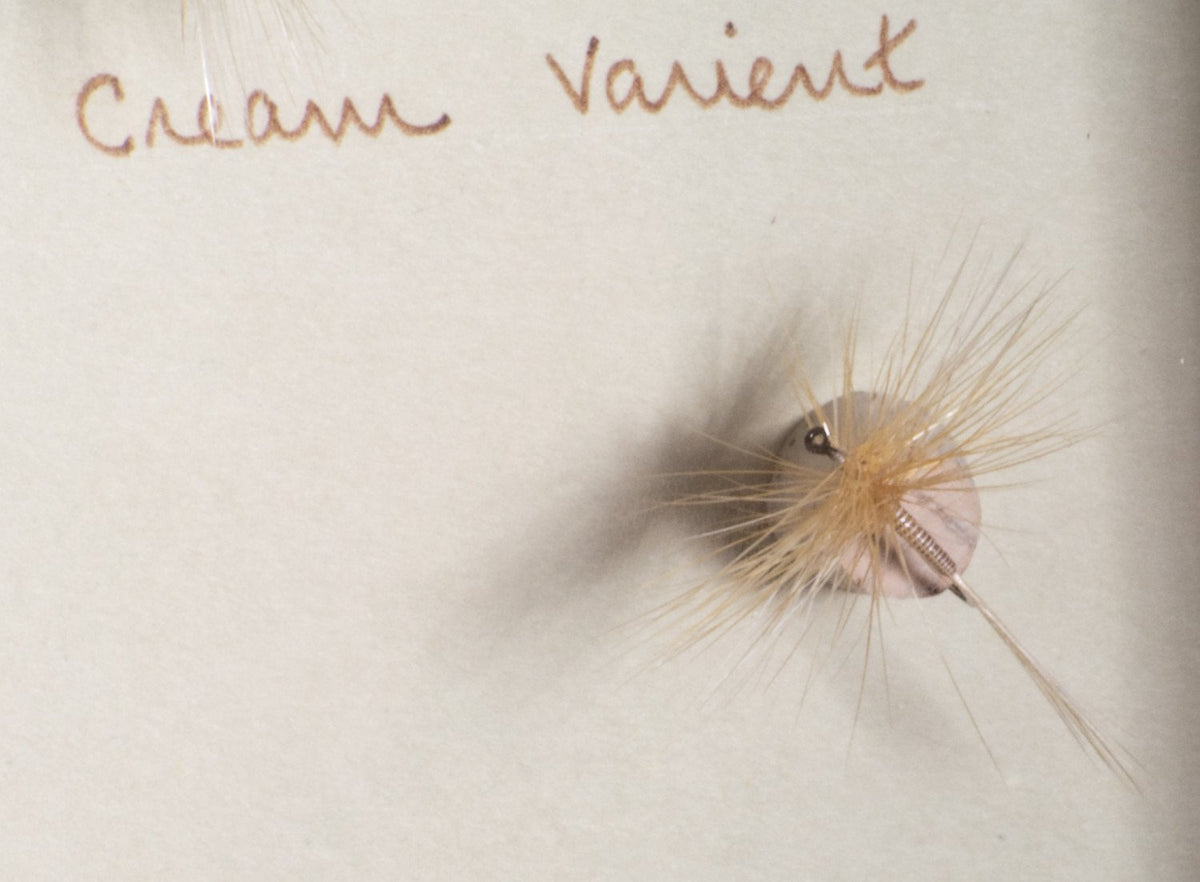 Cream Varient